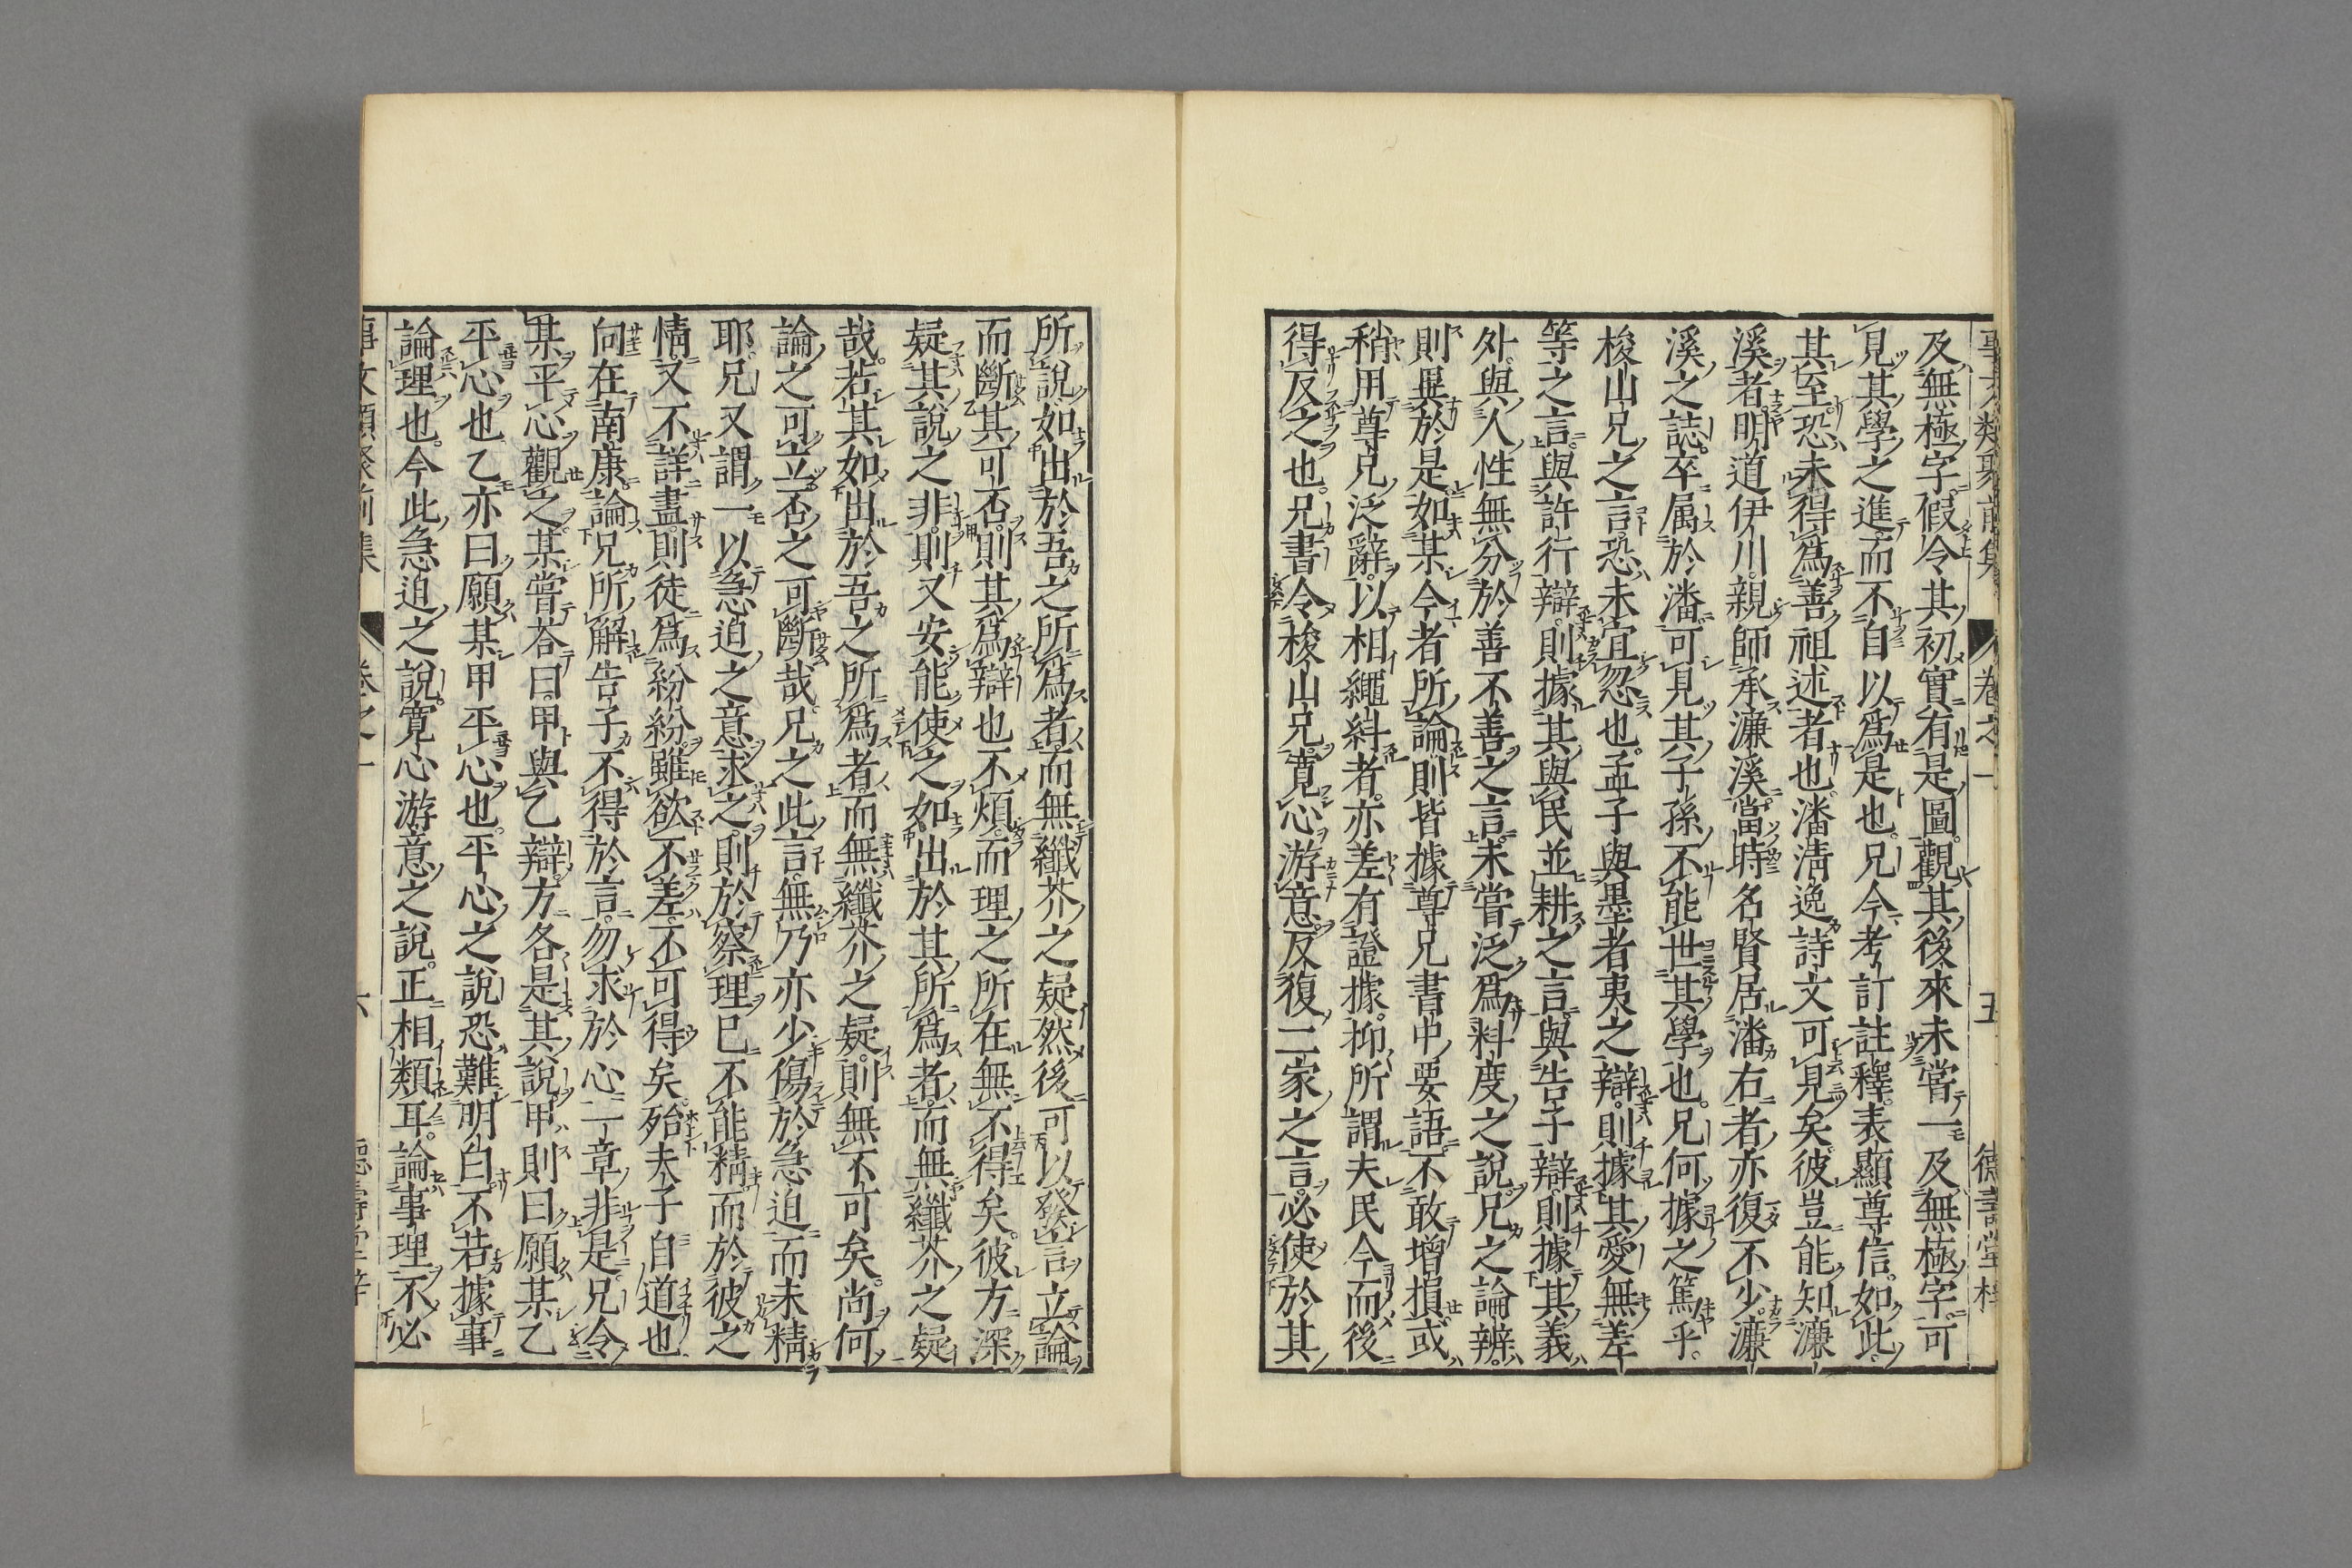 及無極字假令其初實有是圖觀其後來未嘗一及無極字可
見其學之進而不自以爲是也兄今考訂註釋表顯尊信如此
其至恐未得爲善祖述者也潘淸逸詩文可見矣彼豈能知濂
溪者明道伊川親師承濂溪當時名賢居潘右者亦復不少濂
溪之誌卒属於潘可見其子孫不能世其學也兄何據之篤乎
梭山兄之言恐未宜忽也孟子與墨者夷之辯則據其愛無差
等之言與許行辯則據其與民並耕之言與告子辯則據其義
外與人性無分於善不善之言未嘗泛爲料度之說兄之論辨
則異於是如某今者所論則皆據尊兄書中要語不敢增損或
稍用尊兄泛辭以相繩糾者亦差有證據抑所謂夫民今而後
得反之也兄書令梭山兄寛心游意反復二家之言必使於其
所說如出於吾之所爲者而無纖芥之疑然後可以發言立論
而斷其可否則其爲辯也不煩而理之所在無不得矣彼方深
疑其說之非則又安能使之如出於其所爲者而無纖芥之疑
哉若其如出於吾之所爲者而無纖芥之疑則無不可矣尚何
論之可立否之可斷哉兄之此言無乃亦少傷於急迫而未精
耶兄又謂一以急迫之意求之則於察理已不能精而於彼之
情又不詳盡則徒爲紛紛雖欲不差不可得矣殆夫子自道也
向在南康論兄所解告子不得於言勿求於心一章非是兄令
某平心觀之某嘗荅曰甲與乙辯方各是其說甲則曰願某乙
平心也乙亦曰願某甲平心也平心之說恐難明白不若據事
論理也今此急迫之說寛心游意之說正相類耳論事理不必